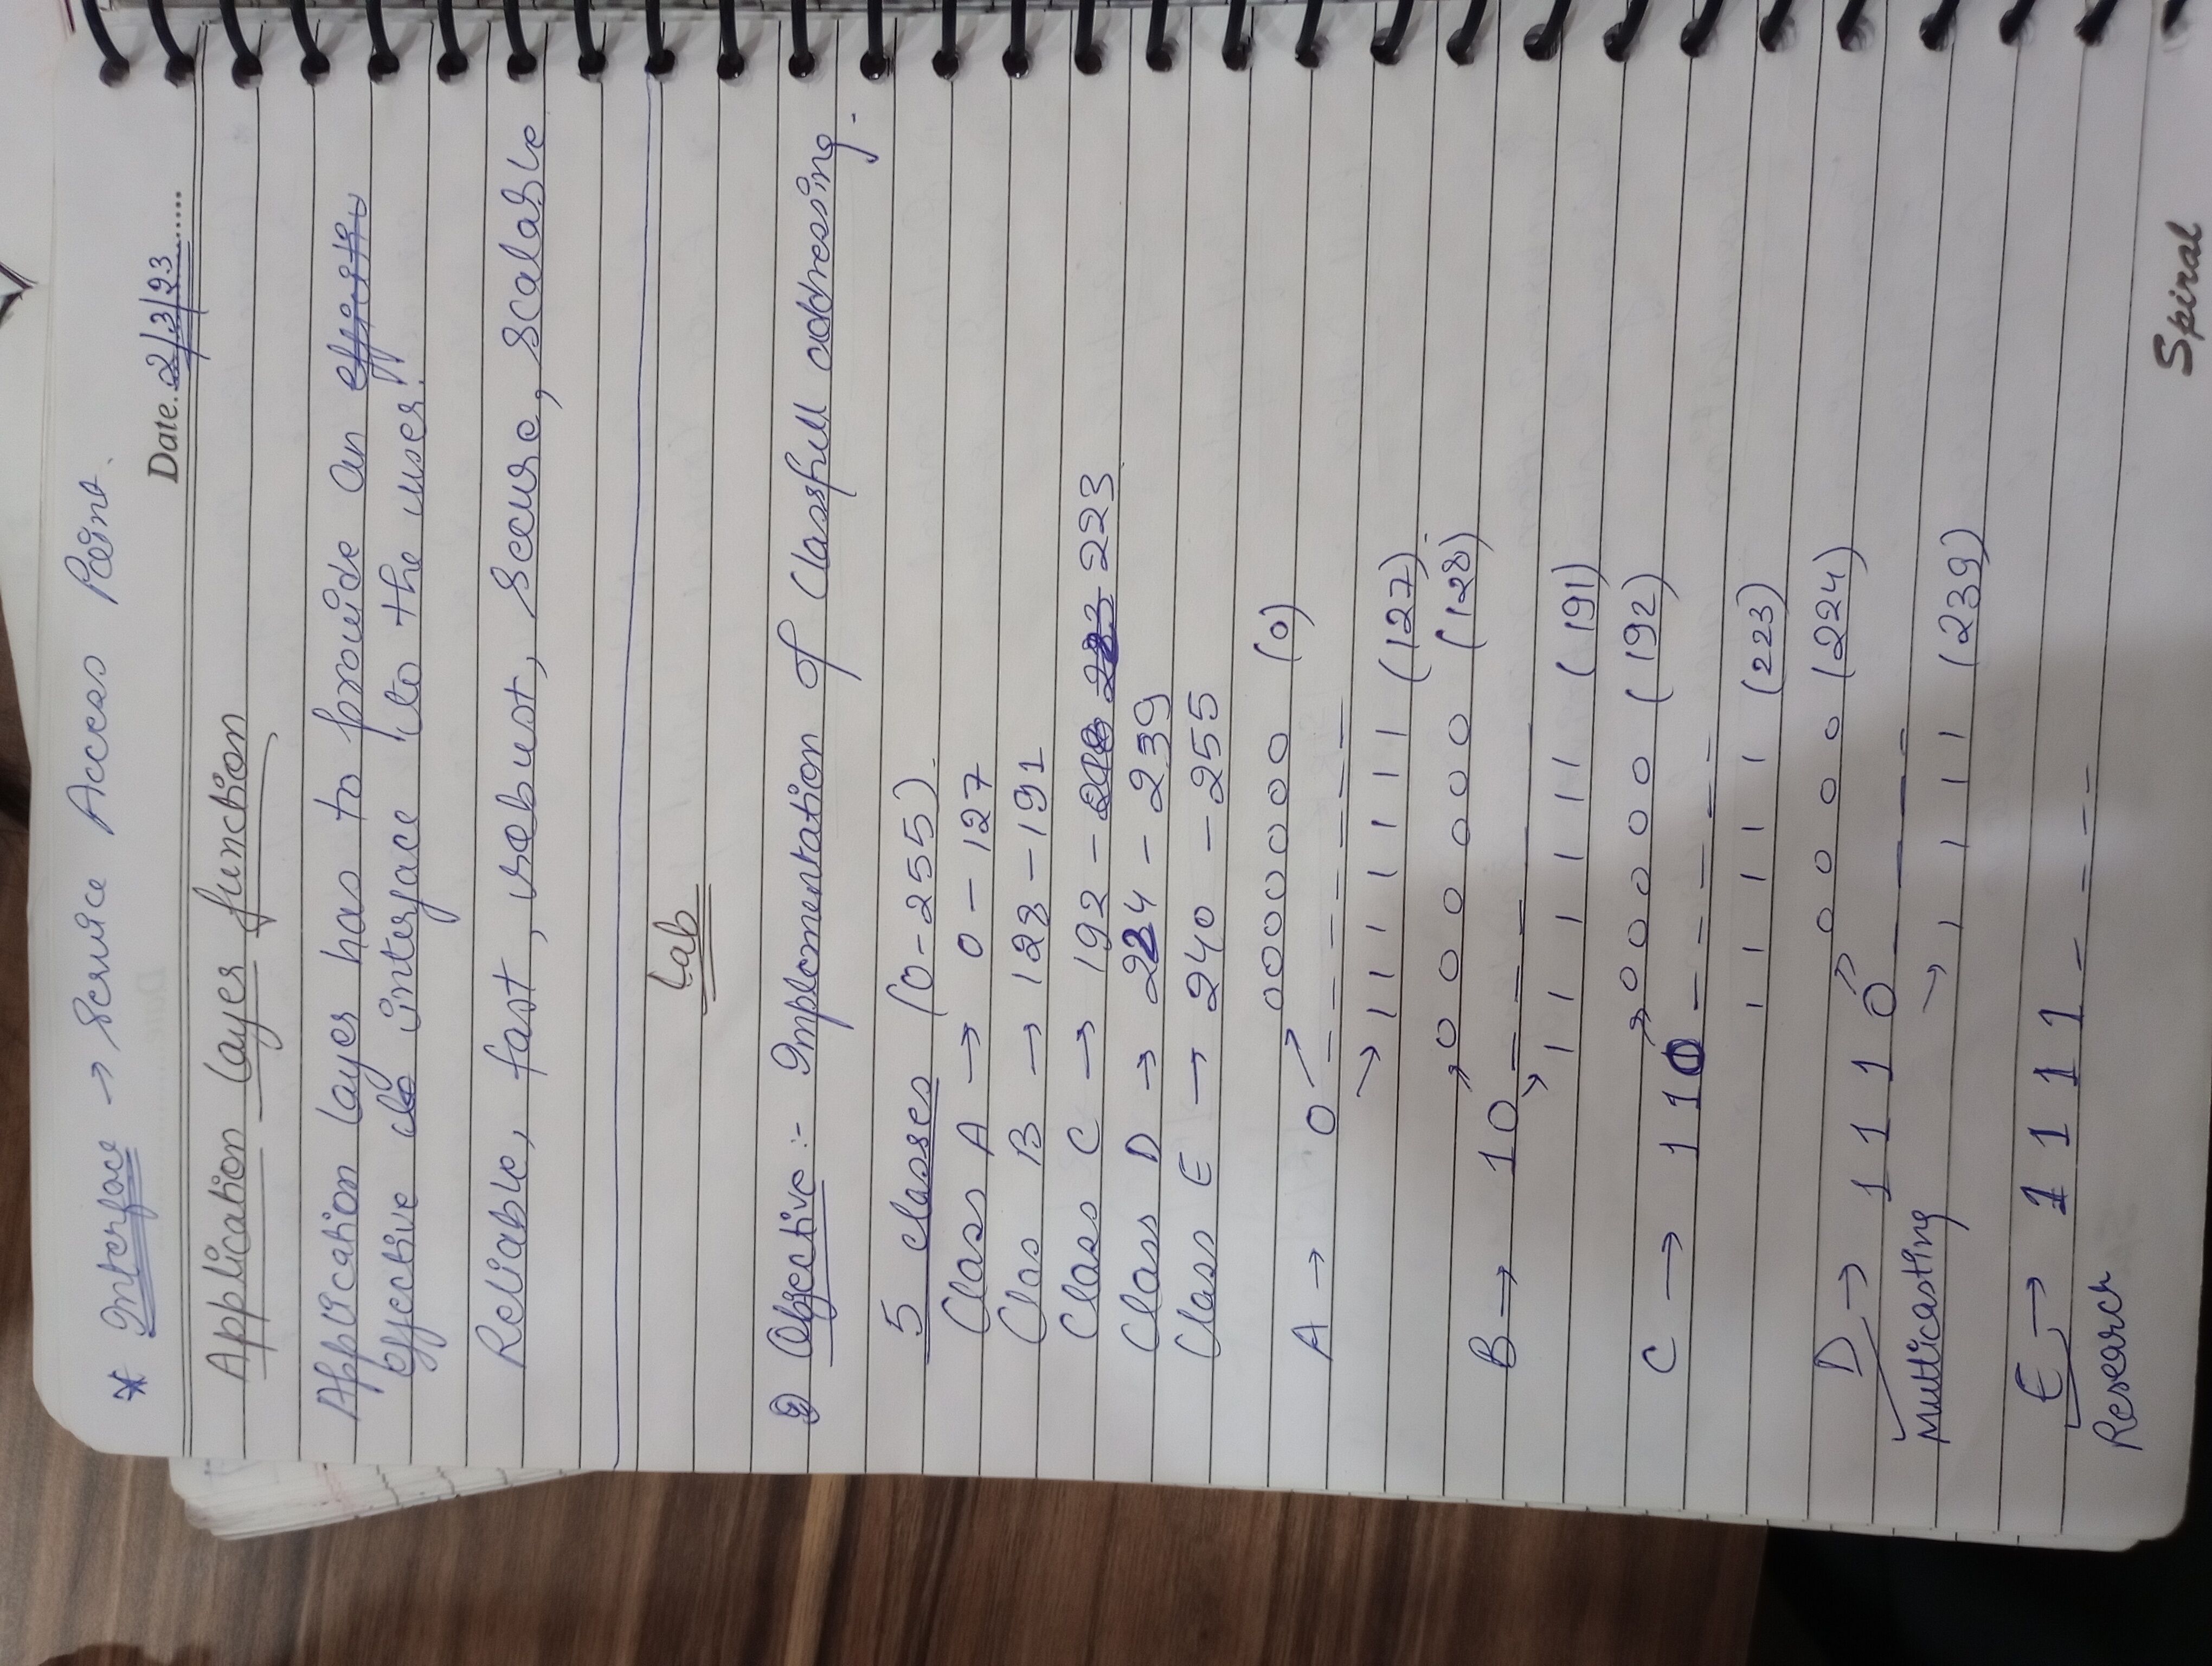 * Interface → Service Access Point.
Date. 2/3/23
Application layer function
Application layer has to provide an
effective interface to the user.
Reliable, fast, robust, secure, scalable
Lab
Objective:- Implementation of Classfull addressing.
5 classes (0-255).
Class A → 0 - 127
Clas B → 128 - 191
Class C → 192 - 223
Class D → 224 - 239
Class E → 240 - 255
0000000 (0)
A → 0 _ _ _ _ _ _ _
→ 1 1 1 1 1 1 1 (127).
0 0 0 0 0 0 (128)
B → 10 _ _ _ _
1 1 1 1 1 1 (191)
0 0 0 0 0 (192)
C → 110 _ _ _ _ _
1 1 1 1 1 (223)
0 0 0 0 (224)
D → 1 1 1 0 _ _ _ _
Multicasting → 1 1 1 1 (239)
E → 1 1 1 1 _ _ _ _
Research
Spiral